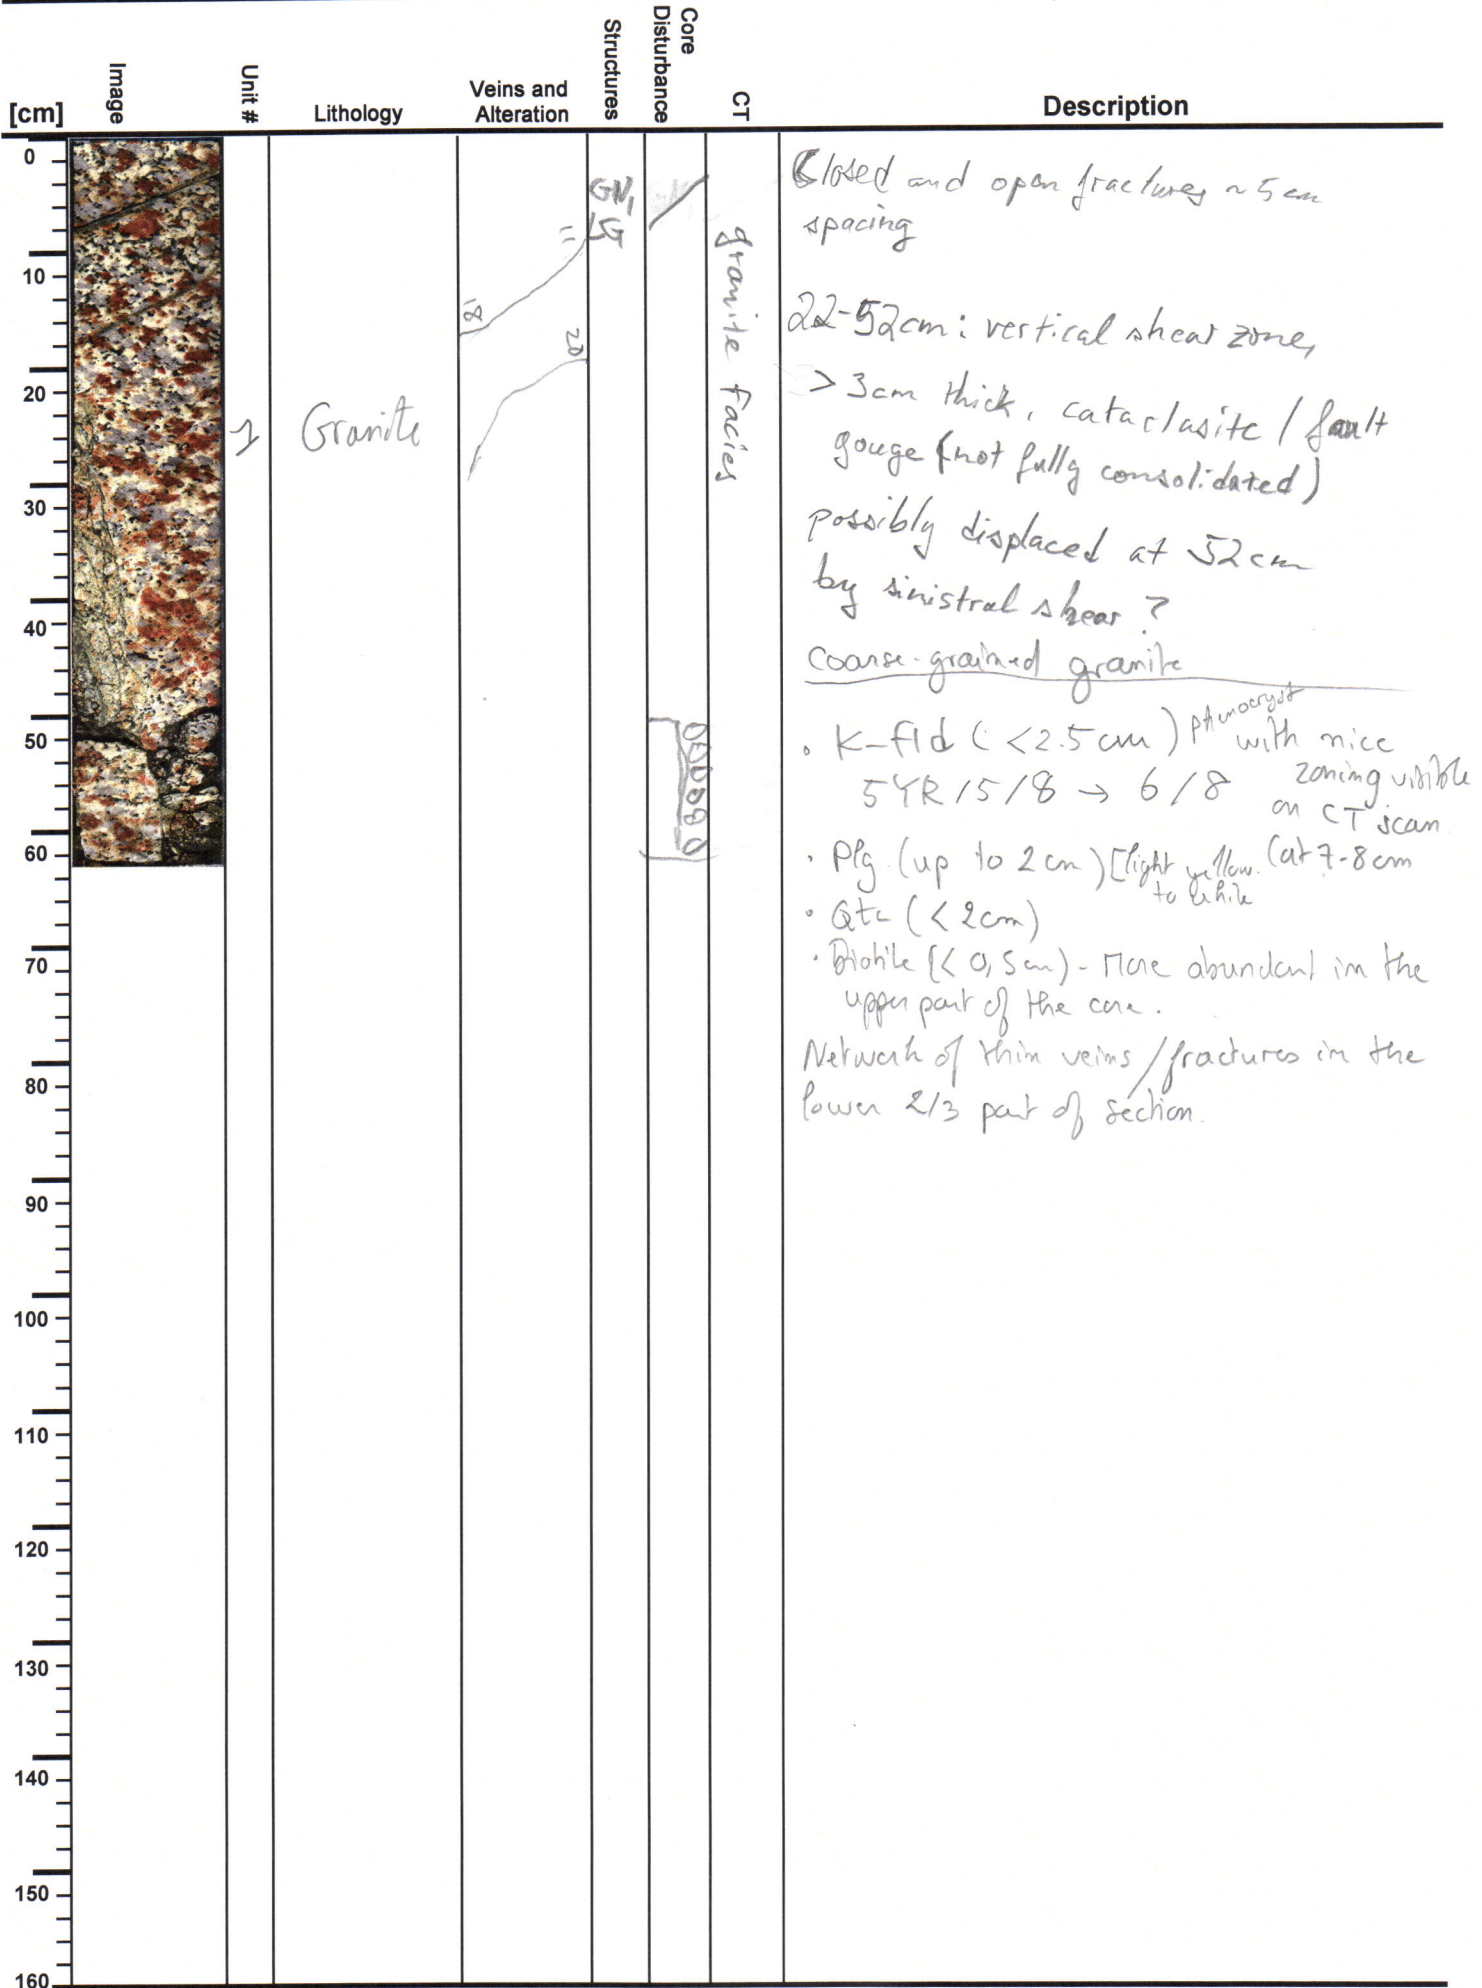 [cm]
Image
Unit #
Lithology
Veins and
Alteration
Structures
Core
Disturbance
CT
Description
0
10
20
30
40
50
60
70
80
90
100
110
120
130
140
150
160
1
Granite
11
18
20
GN,
LG
granite facies
Closed and open fractures ~ 5 cm
spacing
22-52cm: vertical shear zone,
> 3cm thick, cataclasite / fault
gouge (not fully consolidated)
possibly displaced at 52 cm
by sinistral shear ?
coarse-grained granite
• K-Fld (<2.5 cm) phenocryst with nice
5YR/5/8 → 6/8 zoning visible
on CT scan
• Plg (up to 2 cm) [light yellow (at 7-8 cm
to white
• Qtz (< 2cm)
• Biotite (< 0,5 cm) - More abundant in the
upper part of the core.
Network of thin veins/fractures in the
lower 2/3 part of section.